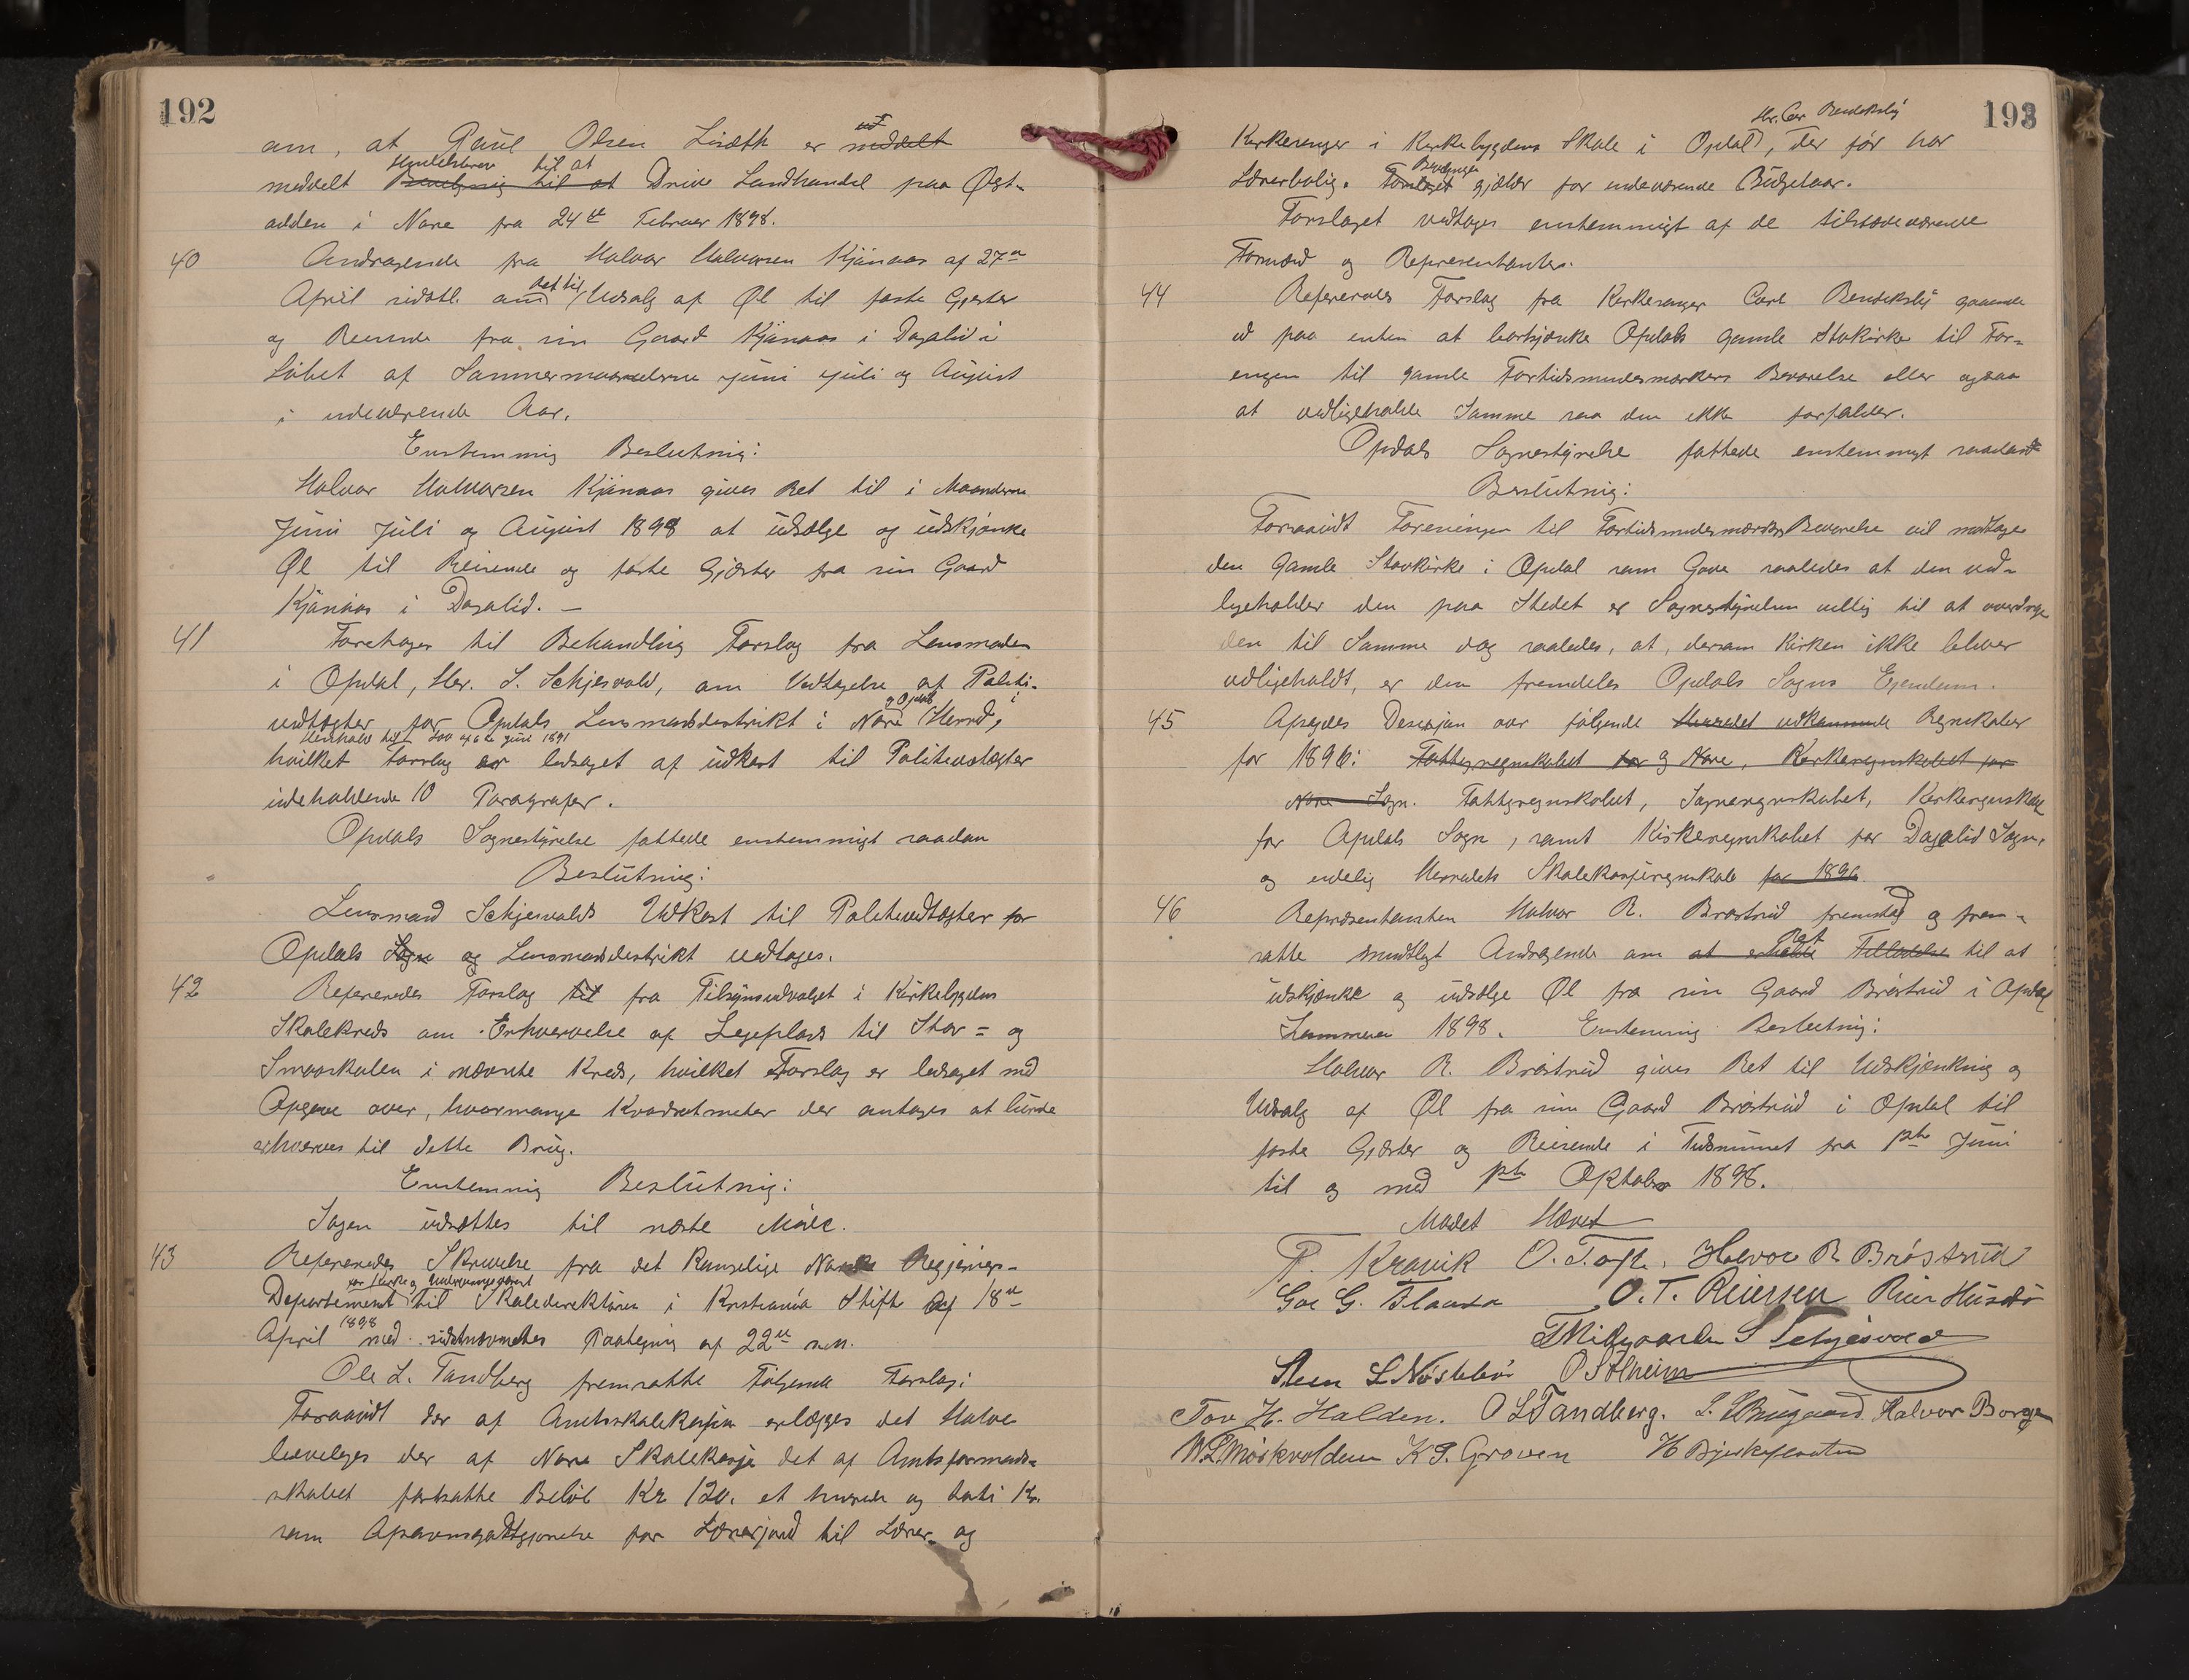 192
om, at Paul Olsen Liseth er meddelt ud
meddelt Handelsbrev til at Bevilgning til at Drive Landhandel paa Øgt-
adden i Nore fra 24de Februar 1898.
40 Andragende fra Halvor Halvorsen Kjønaas af 27de
April sidstl. om Ret til Udsalg af Øl til faste Gjester
og Reisende fra sin Gaard Kjønaas i Dagalid i
Løbet af Sommermaanederne Juni Juli og August
i indeværende Aar.
Enstemmig Beslutning:
Halvor Halvorsen Kjønaas gives Ret til i Maanderne
Juni Juli og August 1898 at udsælge og udskjænke
Øl til Reisende og faste Gjæster fra sin Gaard
Kjønaas i Dagalid. –
41 Foretages til Behandling Forslag fra Lensmanden
i Opdal, Hr. S. Schjesvold, om Vedtagelse af Politi-
vedtægter for Opdals Lensmandsdestrikt i Nore og Opdal Herred, i
Henhold til Lov af 6te Juni 1891
hvilket Forslag er ledsaget af udkast til Politivedtægter
indeholdende 10 Paragrafer.
Opdals Sognestyrelse fattede enstemmigt saadan
Beslutning:
Lensmand Schjesvolds Udkast til Politivedtægter for
Opdals Sogn og Lensmandsdestrikt vedtages.
42 Refereredes Forslag til fra Tilsynsudvalget i Kirkebygdens
Skolekreds om Erhvervelse af Legeplads til Stor- og
Smaaskolen i nævnte Kreds, hvilket Forslag er ledsaget med
Opgave over, hvormange Kvadratmeter der antages at burde
erhverves til dette Brug.
Enstemmig Beslutning:
Sagen udsættes til næste Møde.
43 Refereredes Skrivelse fra det Kongelige Norske Regjerings-
Departement for Kirke og Undervisningsvæsent til Skoledirektøren i Kristiania Stift af 18de
April 1898 med sidstnævntes Paategning af 22de s.m.
Ole L. Tandberg fremsatte følgende Forslag:
Forsaavidt der af Amtsskolekassen erlægges det Halve
bevilges der af Nore Skolekasse det af Amtsformand-
skabet fortsatte Beløb Kr 120. et hundrede og tyve Kr.
som Opsavnsgodtgjørelse for Lærerjord til Lærer og
193
Hr. Car Bendeksby
Kirkesanger i Kirkebygdens Skole i Opdal, der før har
Lærerbolig. Forslaget Bevilgningen gjælder for indeværende Budgetaar.
Forslaget vedtages enstemmigt af de tilstedeværende
Formænd og Representanter.
44 Refereredes Forslag fra Kirkesanger Carl Bendeksby gaaende
ud paa enten at bortskjænke Opdals gamle Stavkirke til For-
engen til gamle Fortidsmindesmærkers Bevarelse eller ogsaa
at vedligeholde Samme saa den ikke forfalder.
Opdals Sognestyrelse fattede enstemmigt saadan
Beslutning:
Forsaavidt Foreningen til Fortidsmindesmærkers Bevarelse vil modtage
den gamle Stavkirke i Opdal som Gave saaledes at den ved-
ligeholder den paa Stedet er Sognestyrelsen villig til at overdrage
den til Samme dog saaledes, at, dersom Kirken ikke bliver
vedligeholdt, er den fremdeles Opdals Sogns Eiendom.
45 Afsagdes Desesjon over følgende Herredet vedkommende Regnskaber
for 1896: Fattigregnskabet for og Nore, Kirkeregnskabet for
Nore Sogn. Fattigregnskabet, Sogneregnskabet, Kirkeregnskabet
for Opdals Sogn, samt Kirkeregnskabet for Dagalid Sogn,
og endelig Herredets Skolekasseregnskab for 1896.
46 Repræsentanten Halvor R. Brøstrud fremstod og frem-
satte mundtligt Andragende om at erholde Ret Tilladelse til at
udskjænke og udsælge Øl fra sin Gaard Brøstrud i Opdal
Sommeren 1898. Enstemmig Beslutning:
Halvor R. Brøstrud gives Ret til Udskjænkning og
Udsalg af Øl fra sin Gaard Brøstrud i Opdal til
faste Gjæster og Reisende i Tidsrummet fra 1ste Juni
til og med 1ste Oktober 1898.
Mødet Hævet
T. Kravik O. Toft. Halvor R Brøstrud
Goe G. Flaata O. T. Reiersen Reier Husebø
T Midgaarden S Schjesvold
Steen L Nøstebø O Solheim
Tov H. Halden. O L Tandberg. Halvor Borgen
W. L. Moskvolden K. G. Groven H Bjerkeflaaten